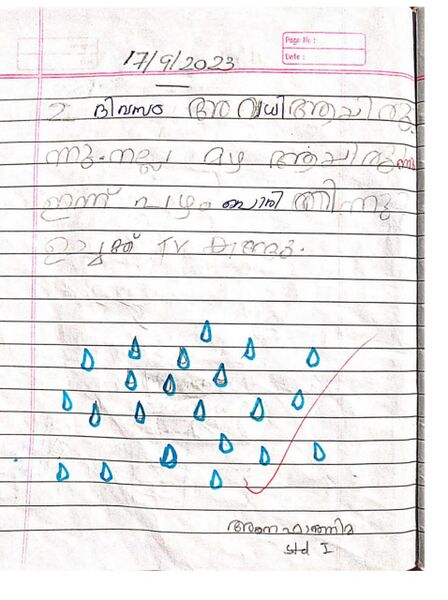 Page No :
Date :
17/9/2023
2 ദിവസം അവധി ആയിരു
ന്നു. നല്ല മഴ ആയിരുന്നു
ഇന്ന് പഴം പൊരി തിന്നു
ഉച്ചക്ക് TV കണ്ടു.
ഫാത്തിമ
std I